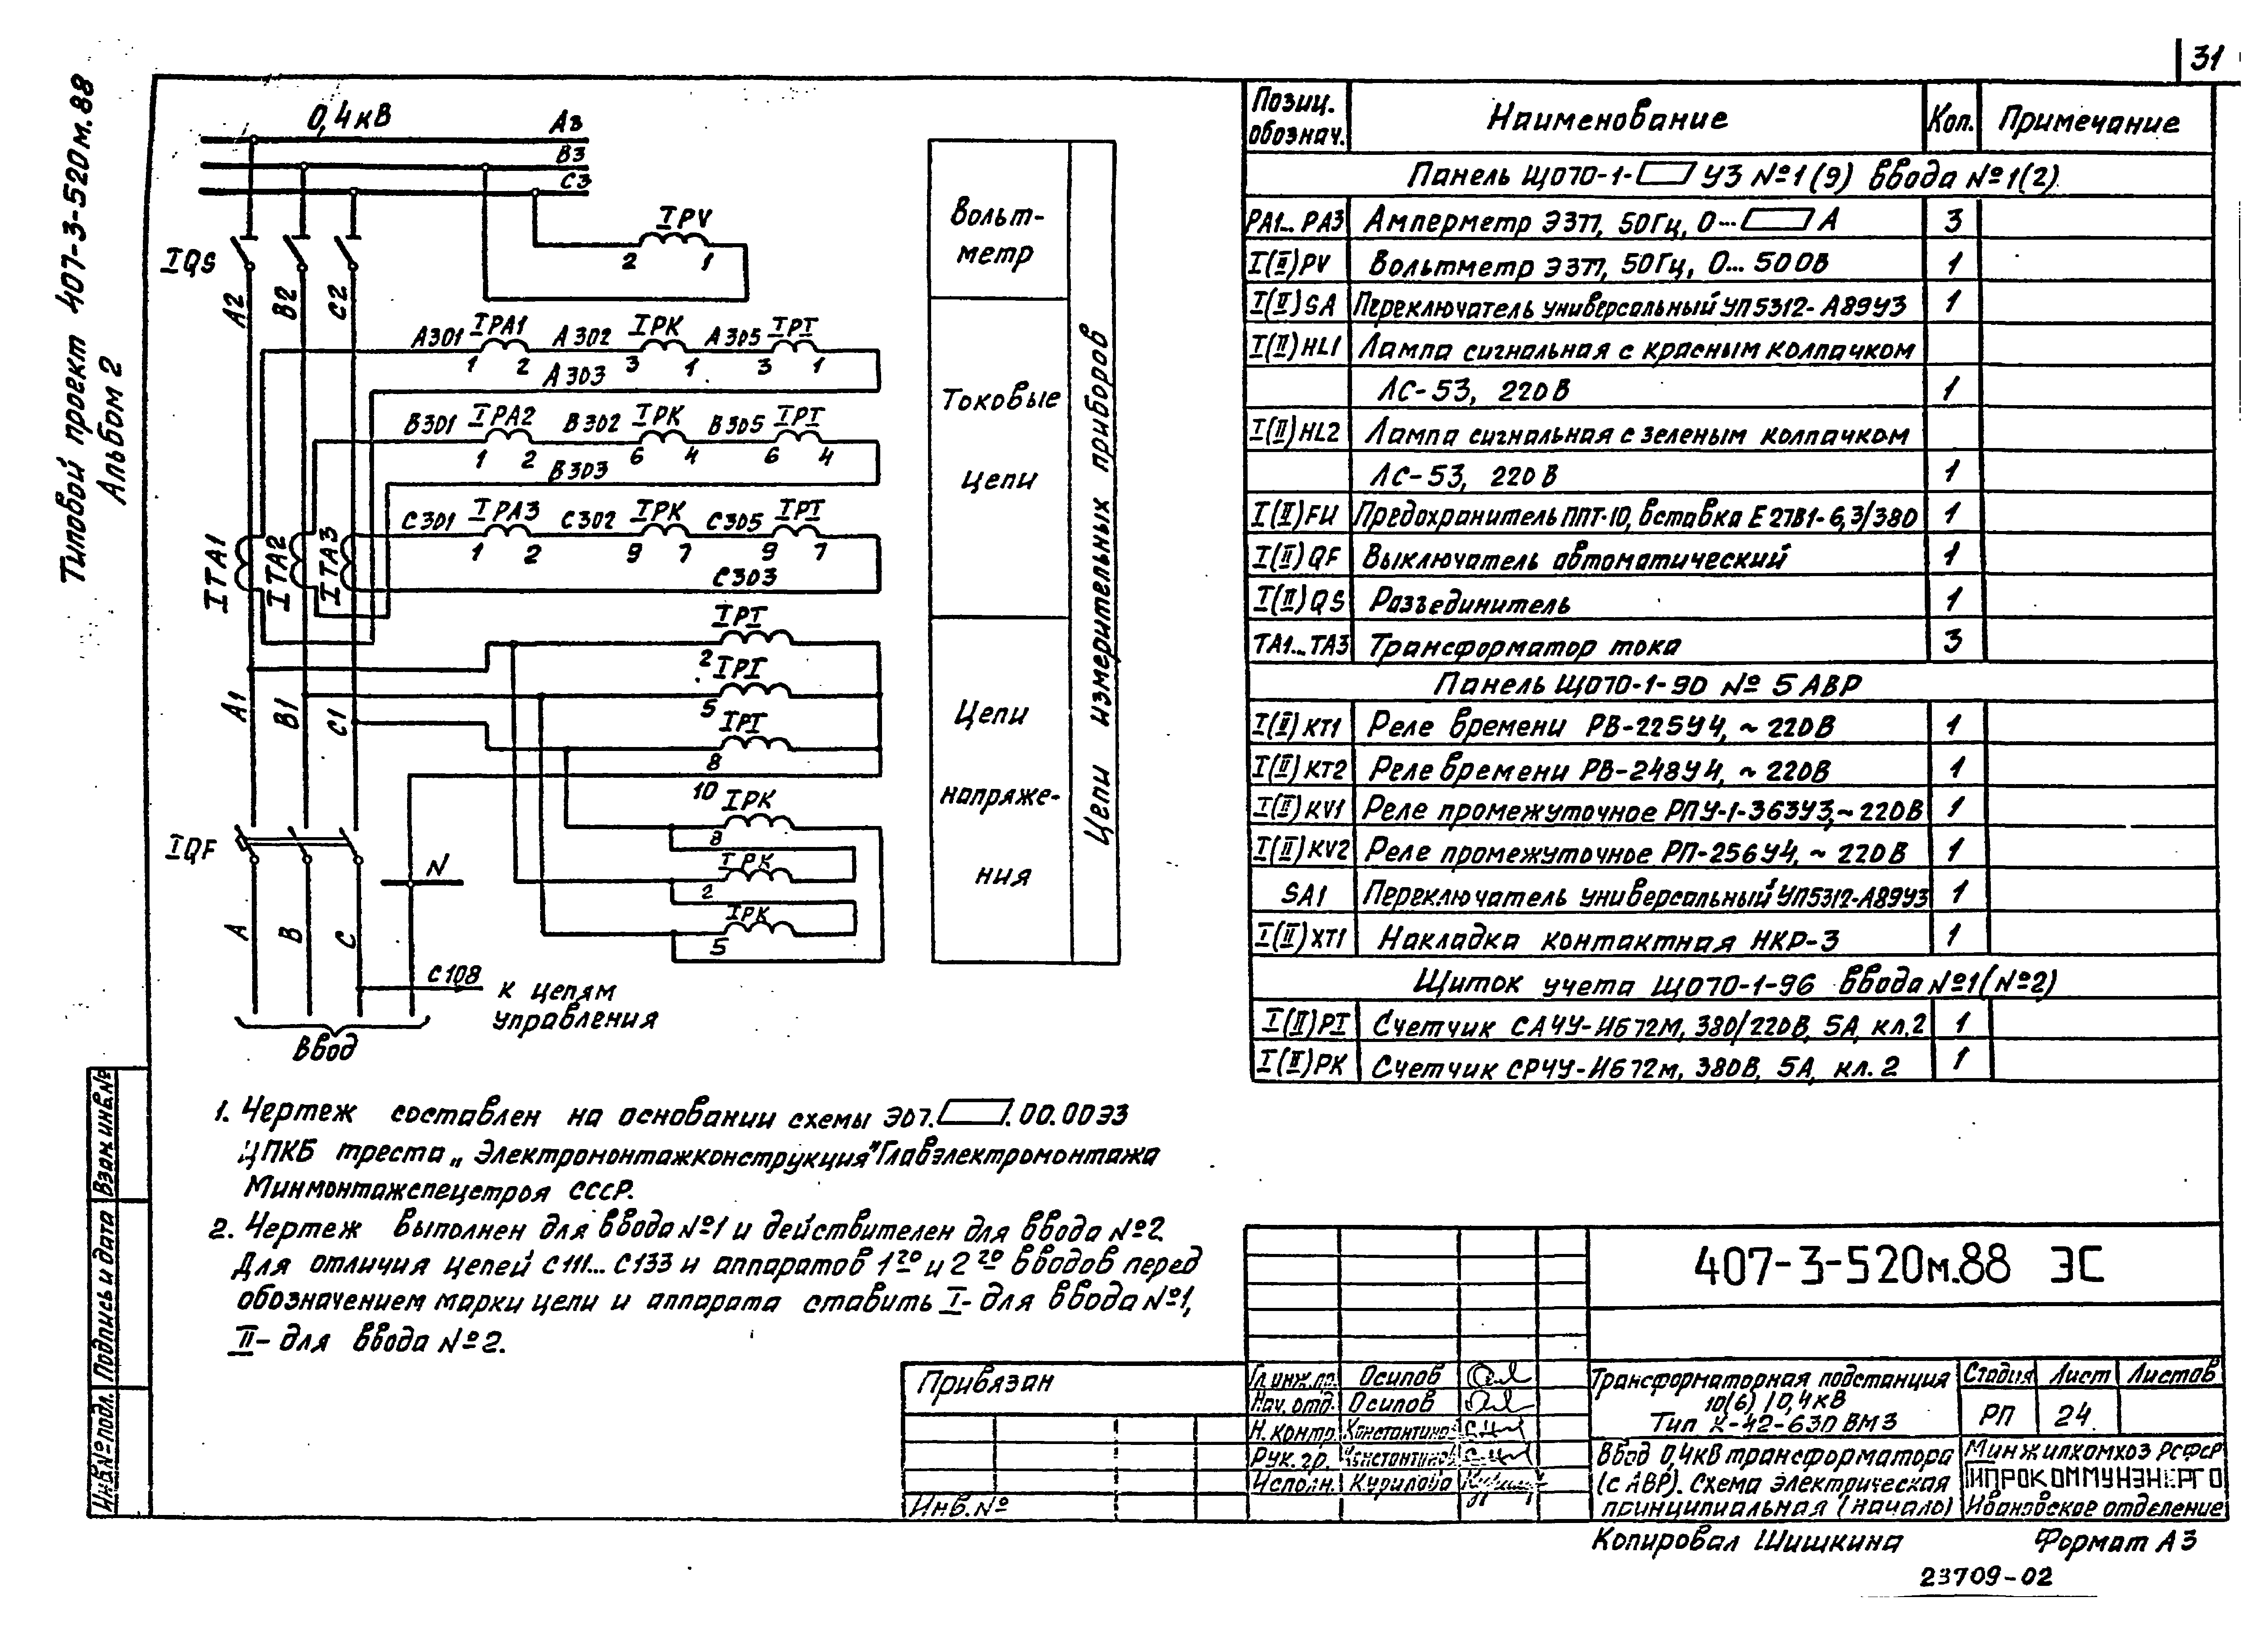 31
Типовой проект 407-3-520м.88
Альбом 2
0,4кВ
А3
В3
С3
IPV
2 1
IQS
А2 В2 С2
А301 IPA1 А302 IPK А305 IPI
1 2 3 1 3 1
А303
В301 IPA2 В302 IPK В305 IPI
1 2 6 4 6 4
В303
С301 IPA3 С302 IPK С305 IPI
1 2 9 7 9 7
С303
ITA1 ITA2 ITA3
IPI
2
IPI
5
IPI
8
10
А1 В1 С1
IPK
8
IPK
2
IPK
5
IQF
N
А В С
С108
к цепям
управления
Ввод
Вольт-
метр
Токовые
цепи
Цепи
напряже-
ния
Цепи измерительных приборов
Позиц. обознач. Наименование Кол. Примечание
Панель ЩО70-1- У3 №1(9) ввода №1(2)
PA1...PA3 Амперметр Э377, 50Гц, 0... А 3
I(II)PV Вольтметр Э377, 50Гц, 0...500В 1
I(II)SA Переключатель универсальный УП5312-А89У3 1
I(II)HL1 Лампа сигнальная с красным колпачком
АС-53, 220В 1
I(II)HL2 Лампа сигнальная с зеленым колпачком
АС-53, 220В 1
I(II)FU Предохранитель ППТ-10, вставка Е27В1-6,3/380 1
I(II)QF Выключатель автоматический 1
I(II)QS Разъединитель 1
TA1...TA3 Трансформатор тока 3
Панель ЩО70-1-90 № 5 АВР
I(II)KT1 Реле времени РВ-225У4, ~220В 1
I(II)KT2 Реле времени РВ-248У4, ~220В 1
I(II)KV1 Реле промежуточное РПУ-1-363У3, ~220В 1
I(II)KV2 Реле промежуточное РП-256У4, ~220В 1
SA1 Переключатель универсальный УП5312-А89У3 1
I(II)XT1 Накладка контактная НКР-3 1
Щиток учета ЩО70-1-96 ввода №1(№2)
I(II)PI Счетчик СА4У-И672М, 380/220В, 5А, кл.2 1
I(II)PK Счетчик СР4У-И672м, 380В, 5А, кл.2 1
1. Чертеж составлен на основании схемы Э07. .00.00Э3
ЦПКБ треста „Электромонтажконструкция" Главэлектромонтажа
Минмонтажспецстроя СССР.
2. Чертеж выполнен для ввода №1 и действителен для ввода №2.
Для отличия цепей С111...С133 и аппаратов 1го и 2го вводов перед
обозначением марки цепи и аппарата ставить I- для ввода №1,
II- для ввода №2.
Взам.инв.№
Подпись и дата
Инв.№подл.
Привязан
Инв.№
Гл.инж.пр. Осипов
Нач. отд. Осипов
Н. контр. Константинова
Рук. гр. Константинова
Исполн. Курилова
407-3-520м.88 ЭС
Трансформаторная подстанция
10(6)/0,4кВ
Тип К-42-630 ВМ3
Стадия Лист Листов
РП 24
Ввод 0,4кВ трансформатора
(с АВР). Схема электрическая
принципиальная (начало)
Минжилкомхоз РСФСР
ГИПРОКОММУНЭНЕРГО
Ивановское отделение
Копировал Шишкина Формат А3
23709-02